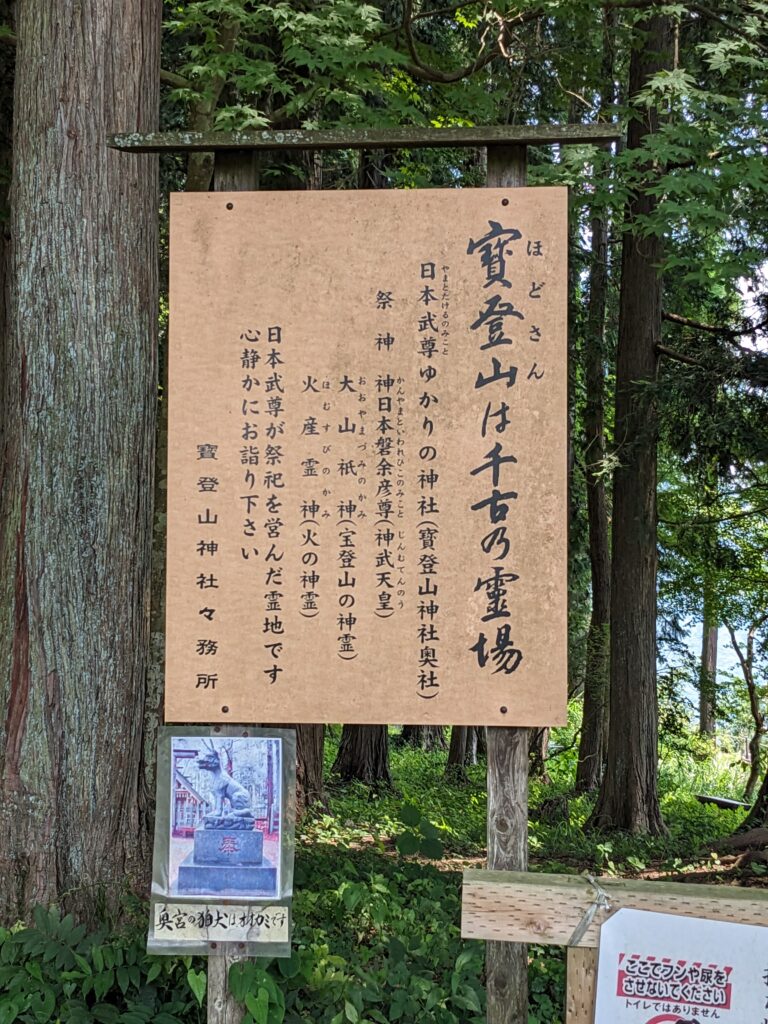 寶登山は千古乃霊場
ほどさん
日本武尊ゆかりの神社(寶登山神社奥社)
やまとたけるのみこと
祭神 神日本磐余彦尊(神武天皇)
かんやまといわれひこのみこと じんむてんのう
大山祇神(宝登山の神霊)
おおやまづみのかみ
火産霊神(火の神霊)
ほむすびのかみ
日本武尊が祭祀を営んだ霊地です
心静かにお詣り下さい
寶登山神社々務所
奥宮の狛犬はオオカミです
ここでフンや尿を
させないでください
トイレではありません